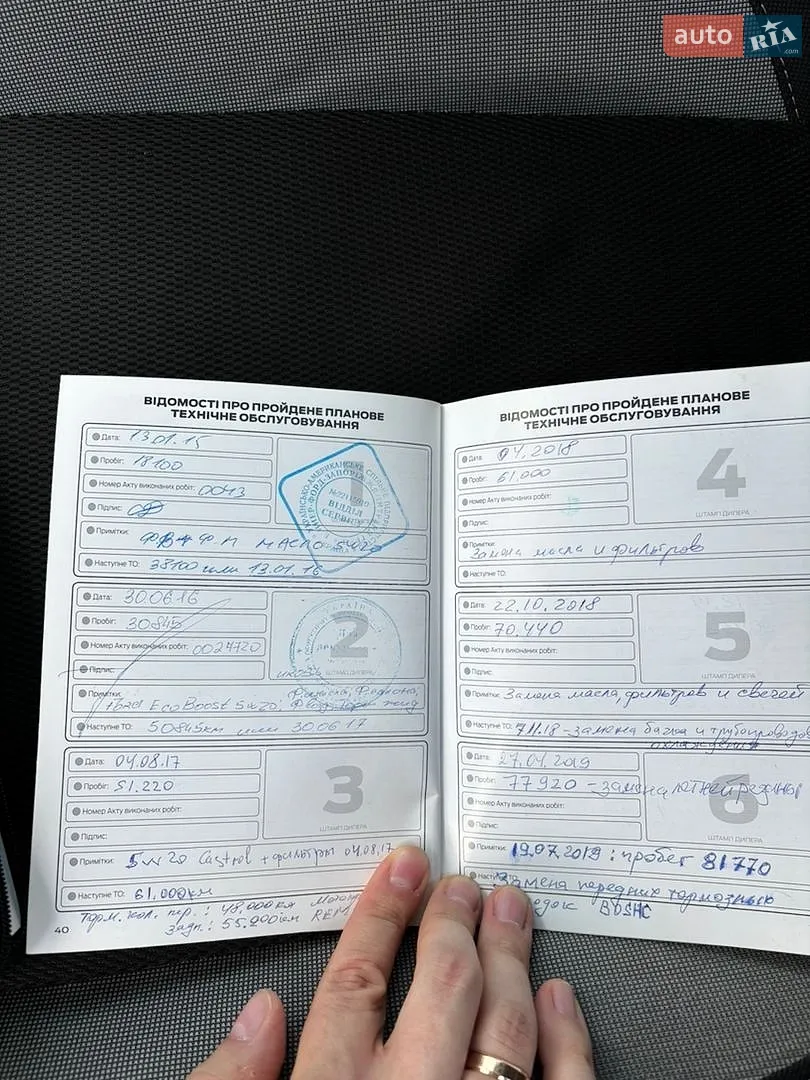 auto RIA .com
ВІДОМОСТІ ПРО ПРОЙДЕНЕ ПЛАНОВЕ
ТЕХНІЧНЕ ОБСЛУГОВУВАННЯ
Дата: 13.01.15
Пробіг: 18100
Номер Акту виконаних робіт: 0043
Підпис:
Примітки: МАСЛО 5w20
Наступне ТО: 38100 или 13.01.16
ВІДДІЛ
Дата: 30.06.16
Пробіг: 30845
Номер Акту виконаних робіт: 0024720
Підпис:
2
ШТАМП ДИЛЕРА
Примітки:
EcoBoost 5w20
Наступне ТО: 50845км или 30.06.17
Дата: 04.08.17
Пробіг: 51.220
Номер Акту виконаних робіт:
Підпис:
3
ШТАМП ДИЛЕРА
Примітки: 5w20 Castrol + фильтры 04.08.17
Наступне ТО: 61.000км
Торм. кол. пер.: 48.000км
Задн.: 55.200км
40
ВІДОМОСТІ ПРО ПРОЙДЕНЕ ПЛАНОВЕ
ТЕХНІЧНЕ ОБСЛУГОВУВАННЯ
Дата: 04.2018
Пробіг: 61.000
Номер Акту виконаних робіт:
Підпис:
4
ШТАМП ДИЛЕРА
Примітки:
Замена масла и фильтров
Наступне ТО:
Дата: 22.10.2018
Пробіг: 70.440
Номер Акту виконаних робіт:
Підпис:
5
ШТАМП ДИЛЕРА
Примітки: Замена масла, фильтров и свечей
Наступне ТО: 7.11.18 - замена бачка и трубопроводов
охлаждения
Дата: 27.04.2019
Пробіг: 77920 - замена летней резины
Номер Акту виконаних робіт:
Підпис:
6
ШТАМП ДИЛЕРА
Примітки: 19.07.2019: пробег 81770
Замена передних тормозных
BOSHC